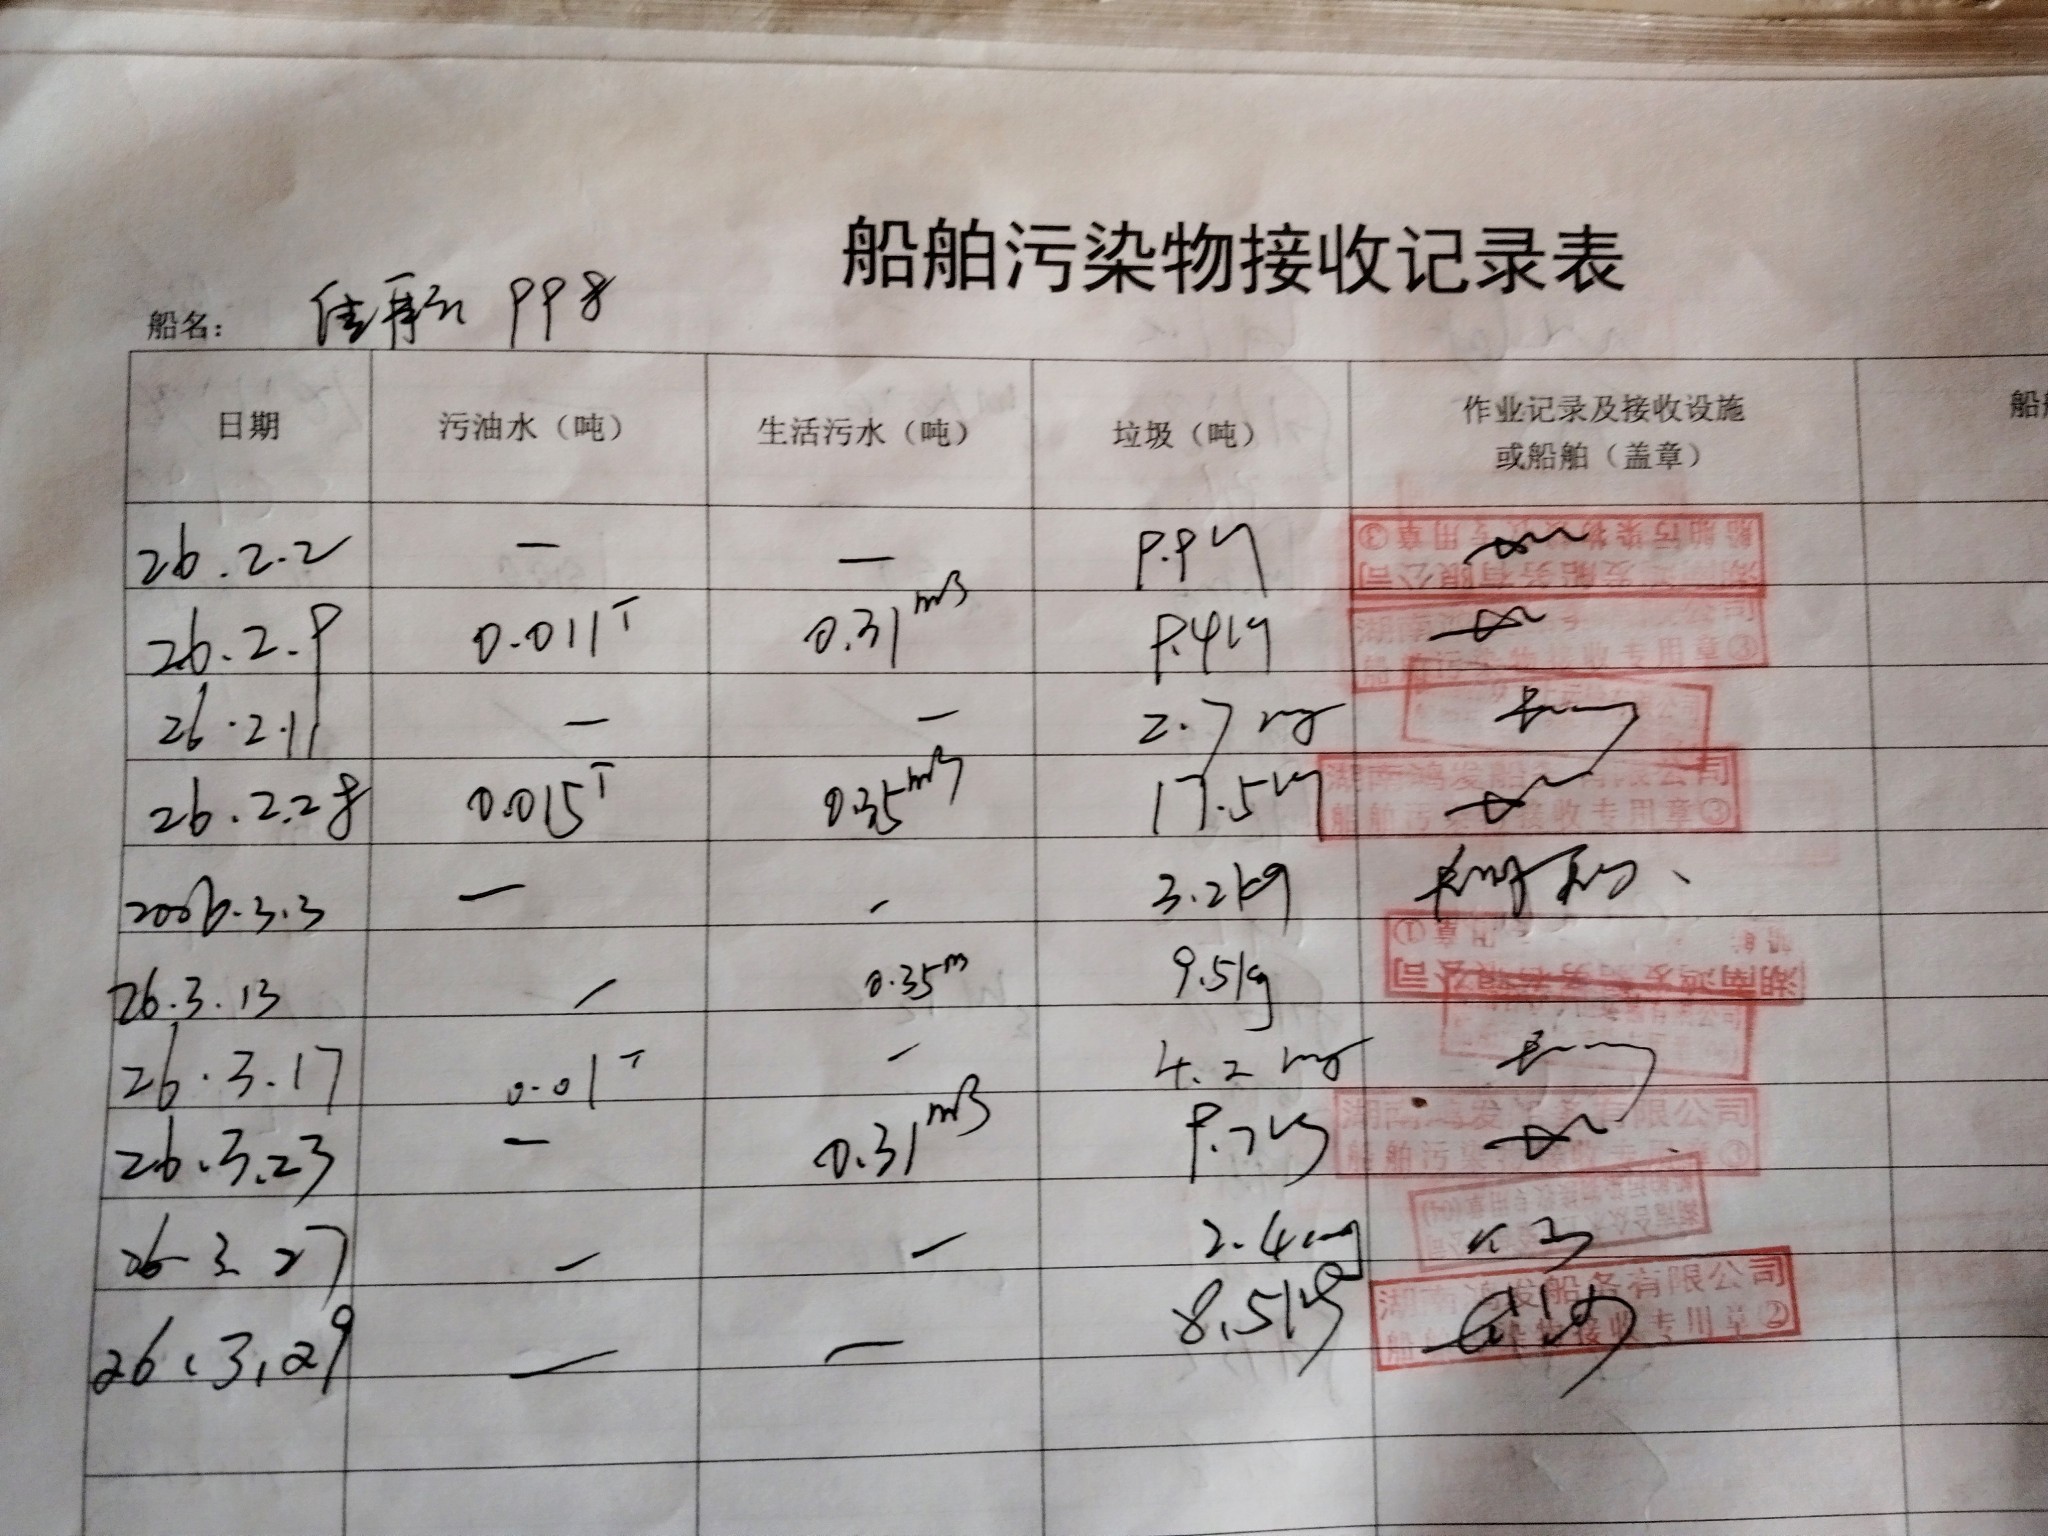 船舶污染物接收记录表
船名： 998
日期 污油水（吨） 生活污水（吨） 垃圾（吨） 作业记录及接收设施 船舶
或船舶（盖章）
26.2.2 — — 9.9kg
船舶污染物接收专用章③
湖南鸿发船务有限公司
26.2.9 0.011T 0.31m3 9.4kg
湖南鸿发船务有限公司
船舶污染物接收专用章③
26.2.11 — — 2.7kg
26.2.28 0.015T 0.35m3 17.5kg
湖南鸿发船务有限公司
船舶污染物接收专用章③
2006.3.3 — - 3.2kg
26.3.13 — 0.35m 9.5kg
湖南鸿发船务有限公司
26.3.17 0.01T - 4.2kg
26.3.23 — 0.31m3 9.7kg
湖南鸿发船务有限公司
船舶污染物接收专用章③
26 3. 27 — — 2.4kg
26.3.29 — — 8.5kg
湖南鸿发船务有限公司
船舶污染物接收专用章②